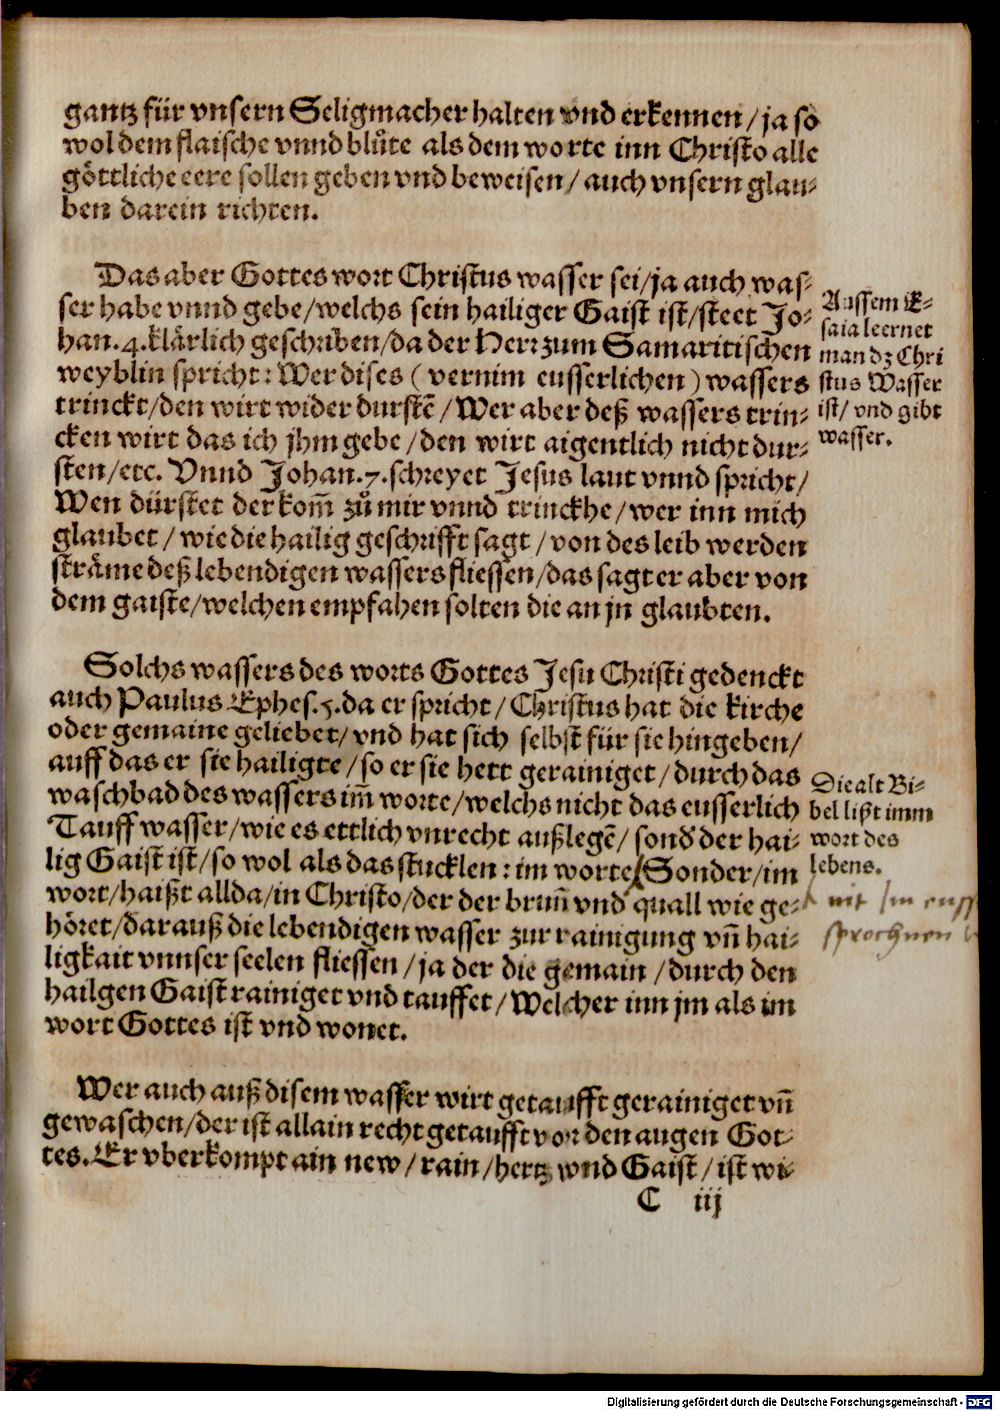 gantz für vnsern Seligmacher halten vnd erkennen / ja so
wol dem flaische vnnd blůte als dem worte inn Christo alle
göttliche eere sollen geben vnd beweisen / auch vnsern glau-
ben darein richten.
Das aber Gottes wort Christus wasser sei / ja auch was-
ser habe vnnd gebe / welchs sein hailiger Gaist ist / steet Jo-
han. 4. klärlich geschriben / da der Herr zum Samaritischen
weyblin spricht: Wer dises ( vernim eusserlichen ) wassers
trinckt / den wirt wider durstē / Wer aber deß wassers trin-
cken wirt das ich jhm gebe / den wirt aigentlich nicht dur-
sten / etc. Vnnd Johan. 7. schreyet Jesus laut vnnd spricht /
Wen dürstet der kom̄ zů mir vnnd trinckhe / wer inn mich
glaubet / wie die hailig geschrifft sagt / von des leib werden
sträme deß lebendigen wassers fliessen / das sagt er aber von
dem gaiste / welchen empfahen solten die an jn glaubten.
Aussem E-
saia leernet
man dz Chri
stus Wasser
ist / vnd gibt
wasser.
Solchs wassers des worts Gottes Jesu Christi gedenckt
auch Paulus Ephes. 5. da er spricht / Christus hat die kirche
oder gemaine geliebet / vnd hat sich selbst für sie hingeben /
auff das er sie hailigte / so er sie hett gerainiget / durch das
waschbad des wassers im̄ worte / welchs nicht das eusserlich
Tauff wasser / wie es ettlich vnrecht außlegē / sond' der hai-
lig Gaist ist / so wol als das stucklen: im worte / Sonder / im
wort / haißt allda / in Christo / der der brun̄ vnd quall wie ge-
höret / darauß die lebendigen wasser zur rainigung vn̄ hai-
ligkait vnnser seelen fliessen / ja der die gemain / durch den
hailgen Gaist rainiget vnd tauffet / Welcher inn jm als im
wort Gottes ist vnd wonet.
Die alt Bi-
bel lißt imm
wort des
lebens.
nit Im euss
sprochnen
Wer auch auß disem wasser wirt getaufft gerainiget vn̄
gewaschen / der ist allain recht getaufft vor den augen Got-
tes. Er vberkompt ain new / rain / hertz vnd Gaist / ist wi-
C iij
Digitalisierung gefördert durch die Deutsche Forschungsgemeinschaft - DFG